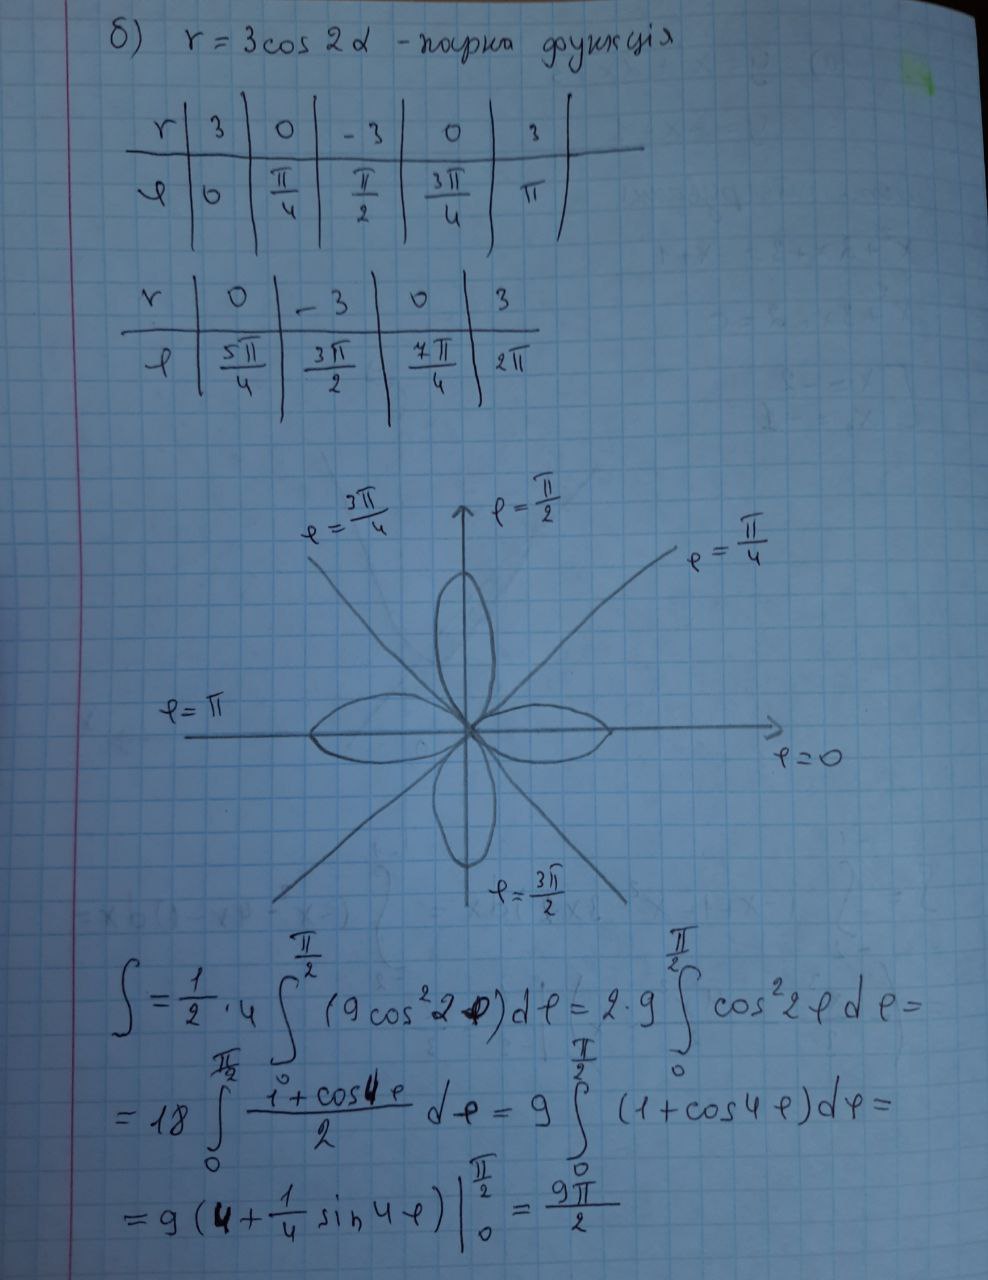 б) r = 3cos 2α - парна функція
r | 3 | 0 | -3 | 0 | 3
φ | 0 | π/4 | π/2 | 3π/4 | π
r | 0 | -3 | 0 | 3
φ | 5π/4 | 3π/2 | 7π/4 | 2π
φ = 3π/4
φ = π/2
φ = π/4
φ = π
φ = 0
φ = 3π/2
S = 1/2 · 4 ∫₀^(π/2) (9cos²2φ)dφ = 2·9 ∫₀^(π/2) cos²2φdφ =
= 18 ∫₀^(π/2) (1+cos4φ)/2 dφ = 9 ∫₀^(π/2) (1+cos4φ)dφ =
= 9 (4 + 1/4 sin4φ) |₀^(π/2) = 9π/2